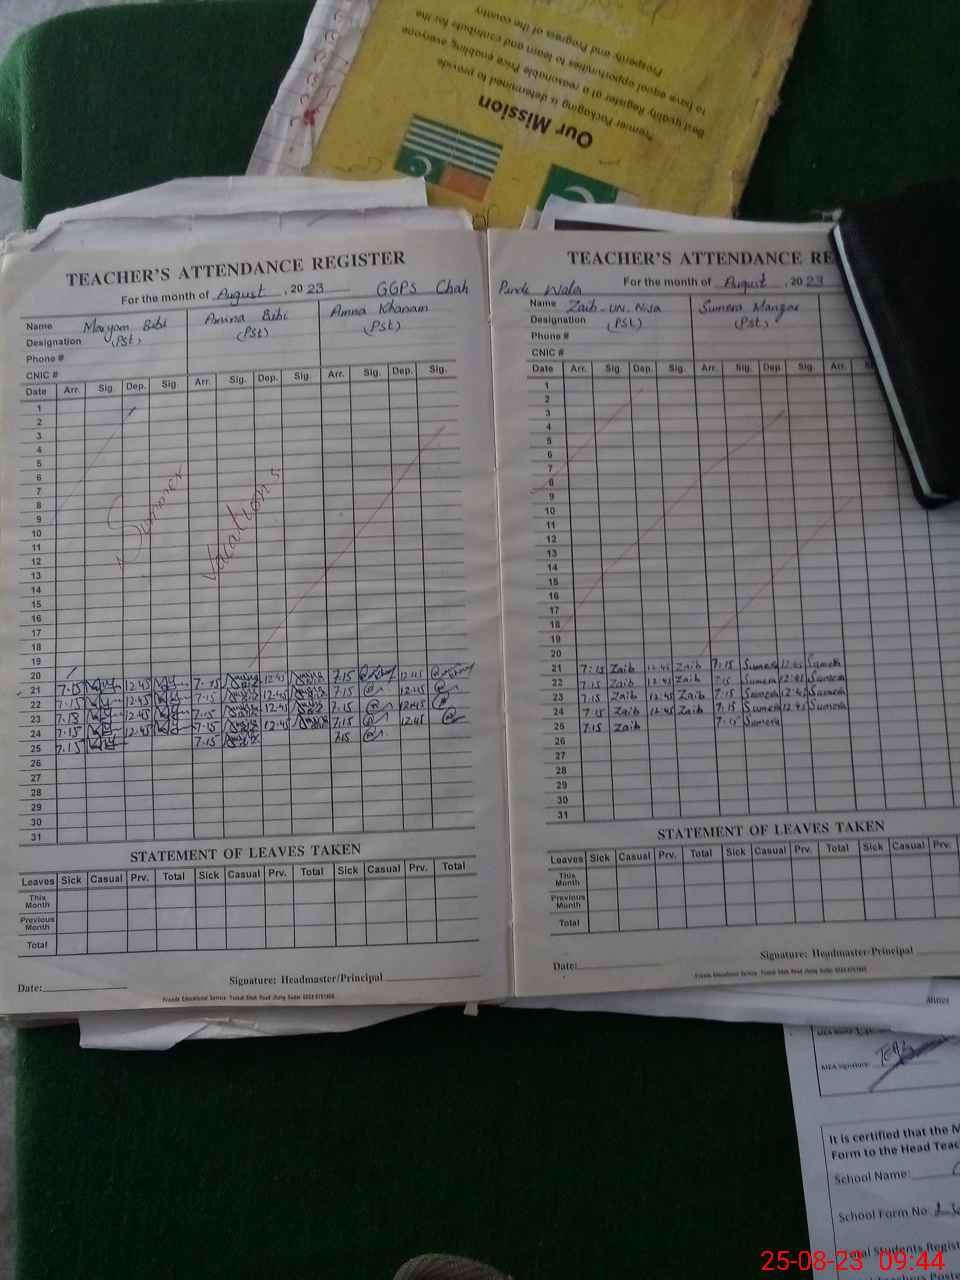 Our Mission
Premier Packaging is determined to provide
Best quality Register at a reasonable Price enabling everyone
to have equal opportunities to learn and contribute for the
Prosperity and Progress of the country
TEACHER'S ATTENDANCE REGISTER
For the month of August, 2023 GGPS Chah
Name Maryam Bibi Amina Bibi Amna Khanam
Designation (Pst) (Pst) (Pst)
Phone #
CNIC #
Date Arr. Sig. Dep. Sig. Arr. Sig. Dep. Sig. Arr. Sig. Dep. Sig.
1
2
3
4
5
6
7
8
9
10
11
12
13
14
15
16
17
18
19
Summer
Vacations
20
21 7.15 12.45 7.15 12.45 7.15 12.45
22 7.15 12.45 7.15 12.45 7.15 12.45
23 7.15 12.45 7.15 12.45 7.15 12.45
24 7.15 12.45 7.15 12.45 7.15 12.45
25 7.15 7.15 7.15
26
27
28
29
30
31
STATEMENT OF LEAVES TAKEN
Leaves Sick Casual Prv. Total Sick Casual Prv. Total Sick Casual Prv. Total
This Month
Previous Month
Total
Date: Signature: Headmaster/Principal
TEACHER'S ATTENDANCE RE
Wala For the month of August, 2023
Name Zaib-un-Nisa Sumera Manzar
Designation (Pst) (Pst)
Phone #
CNIC #
Date Arr. Sig. Dep. Sig. Arr. Sig. Dep. Sig. Arr.
1
2
3
4
5
6
7
8
9
10
11
12
13
14
15
16
17
18
19
20
21 7:15 Zaib 12.45 Zaib 7:15 Sumera 12:45 Sumera
22 7:15 Zaib 12.45 Zaib 7:15 Sumera 12:45 Sumera
23 7:15 Zaib 12.45 Zaib 7:15 Sumera 12:45 Sumera
24 7:15 Zaib 12.45 Zaib 7:15 Sumera 12:45 Sumera
25 7:15 Zaib 7:15 Sumera
26
27
28
29
30
31
STATEMENT OF LEAVES TAKEN
Leaves Sick Casual Prv. Total Sick Casual Prv. Total Sick Casual Prv.
This Month
Previous Month
Total
Date: Signature: Headmaster/Principal
MEA Signature:
It is certified that the M
Form to the Head Teac
School Name:
School Form No:
Total Students Regist
25-08-23 09:44